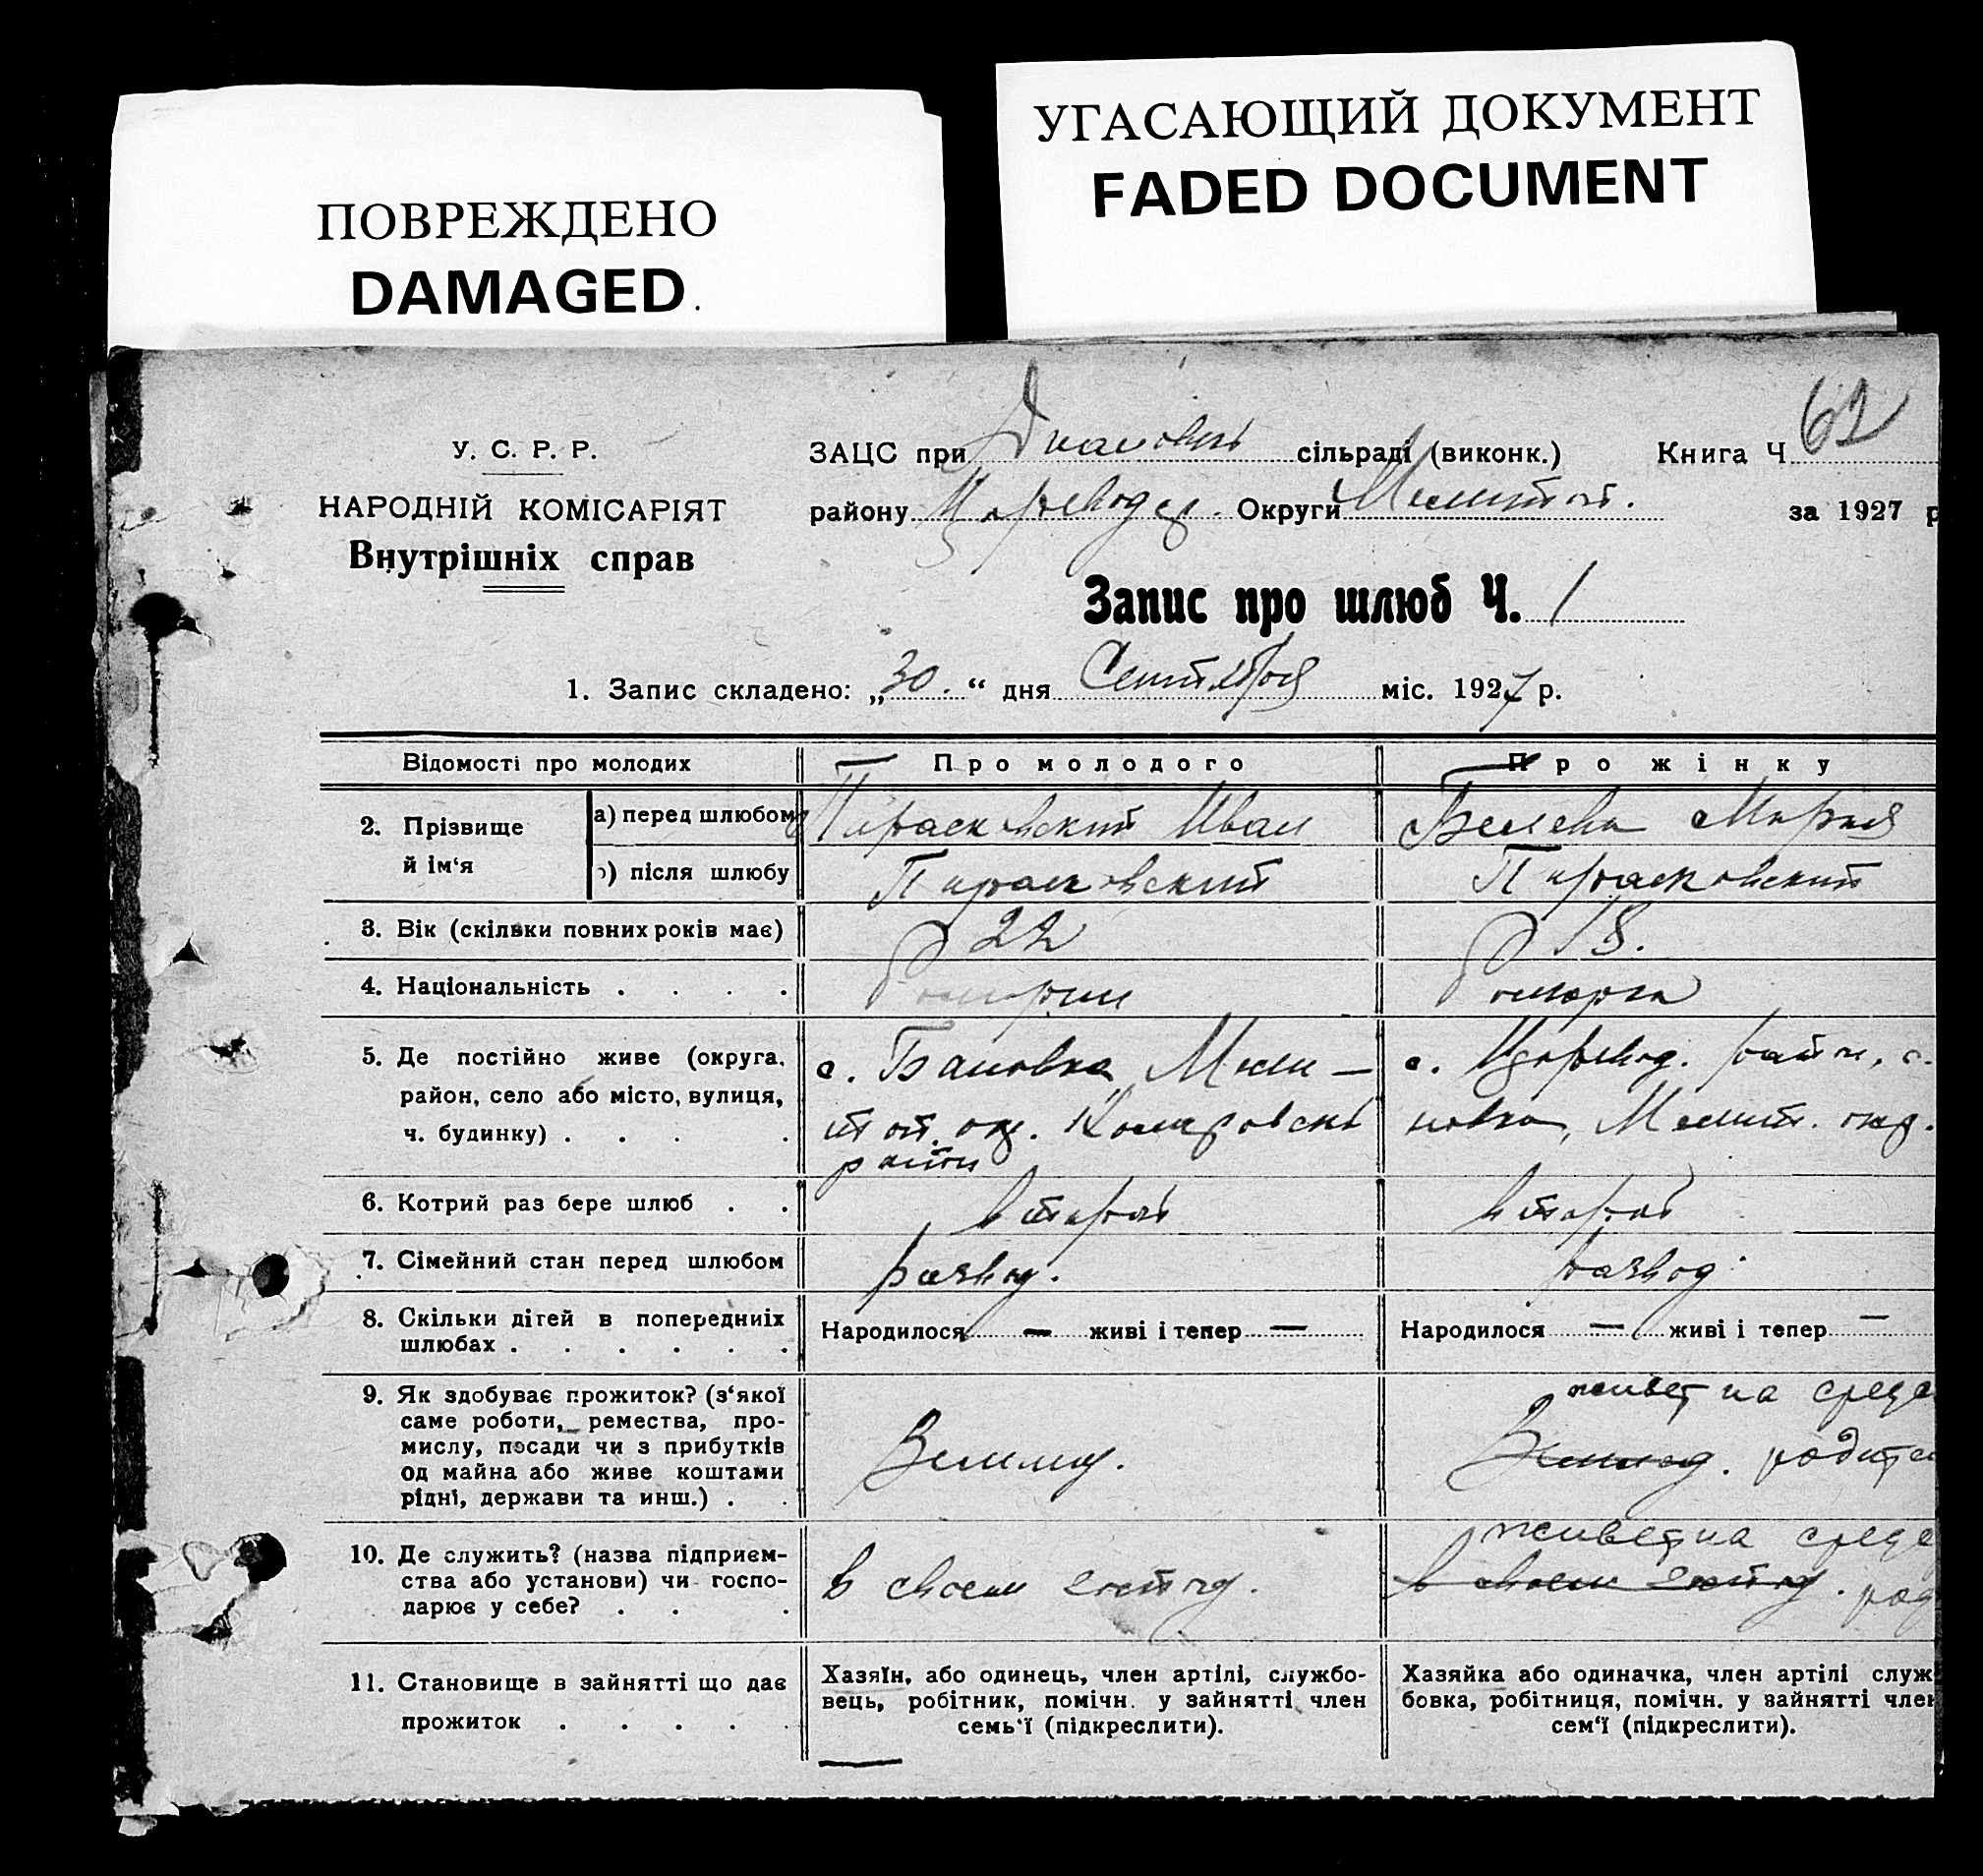 ПОВРЕЖДЕНО
DAMAGED.
УГАСАЮЩИЙ ДОКУМЕНТ
FADED DOCUMENT
У. С. Р. Р.
НАРОДНІЙ КОМІСАРІЯТ
Внутрішніх справ
ЗАЦС при сільраді (виконк.) Книга Ч 62
району Цареводар. Округи Мелитоп. за 1927 р
Запис про шлюб Ч. 1
1. Запис складено: „30.“ дня Сентября міс. 1927 р.
Відомості про молодих Про молодого Про жінку
2. Прізвище й ім‘я
а) перед шлюбом Парасковский Иван Белева Мария
б) після шлюбу Парасковский Парасковский
3. Вік (скільки повних років має) 22 18.
4. Національність . . . . Болгарин Болгарка
5. Де постійно живе (округа, с. Бановка Мели— с. Царевод. район, с.
район, село або місто, вулиця, топ. окр. новка, Мелит. окр.
ч. будинку) . . . . район
6. Котрий раз бере шлюб . . второй второй
7. Сімейний стан перед шлюбом развод. развод.
8. Скільки дітей в попередниіх Народилося — живі і тепер — Народилося — живі і тепер —
шлюбах . . . . . .
9. Як здобуває прожиток? (з‘якої живет на средс
саме роботи, ремества, про-
мислу, посади чи з прибутків Землед. Землед. родите
од майна або живе коштами
рідні, держави та инш.) . .
10. Де служить? (назва підприєм- живет на средс
ства або установи) чи госпо- в своем хозяйстве. в своем род
дарює у себе? . . .
11. Становище в зайнятті що дає
прожиток . . . . .
Хазяїн, або одинець, член артілі, службо-
вець, робітник, помічн. у зайнятті член
семь‘ї (підкреслити).
Хазяйка або одиначка, член артілі служ
бовка, робітниця, помічн. у зайнятті член
сем‘ї (підкреслити).